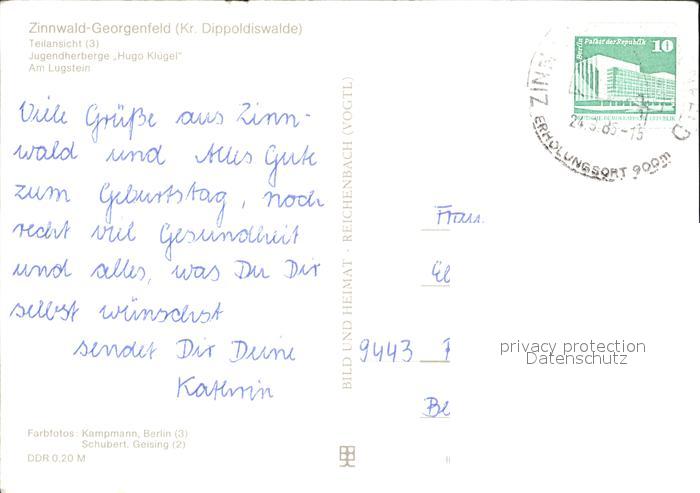 Zinnwald-Georgenfeld (Kr. Dippoldiswalde)
Teilansicht (3)
Jugendherberge „Hugo Klügel"
Am Lugstein
Viele Grüße aus Zinn-
wald und Alles Gute
zum Geburtstag, noch
recht viel Gesundheit
und alles, was Du Dir
selbst wünschst
sendet Dir Deine
Kathrin
Farbfotos: Kampmann, Berlin (3)
Schubert, Geising (2)
DDR 0,20 M
BILD UND HEIMAT · REICHENBACH (VOGTL)
Berlin Palast der Republik
10
DEUTSCHE DEMOKRATISCHE REPUBLIK
ZINN
ERHOLUNGSORT 900m
Frau
El
9443
Be
privacy protection
Datenschutz